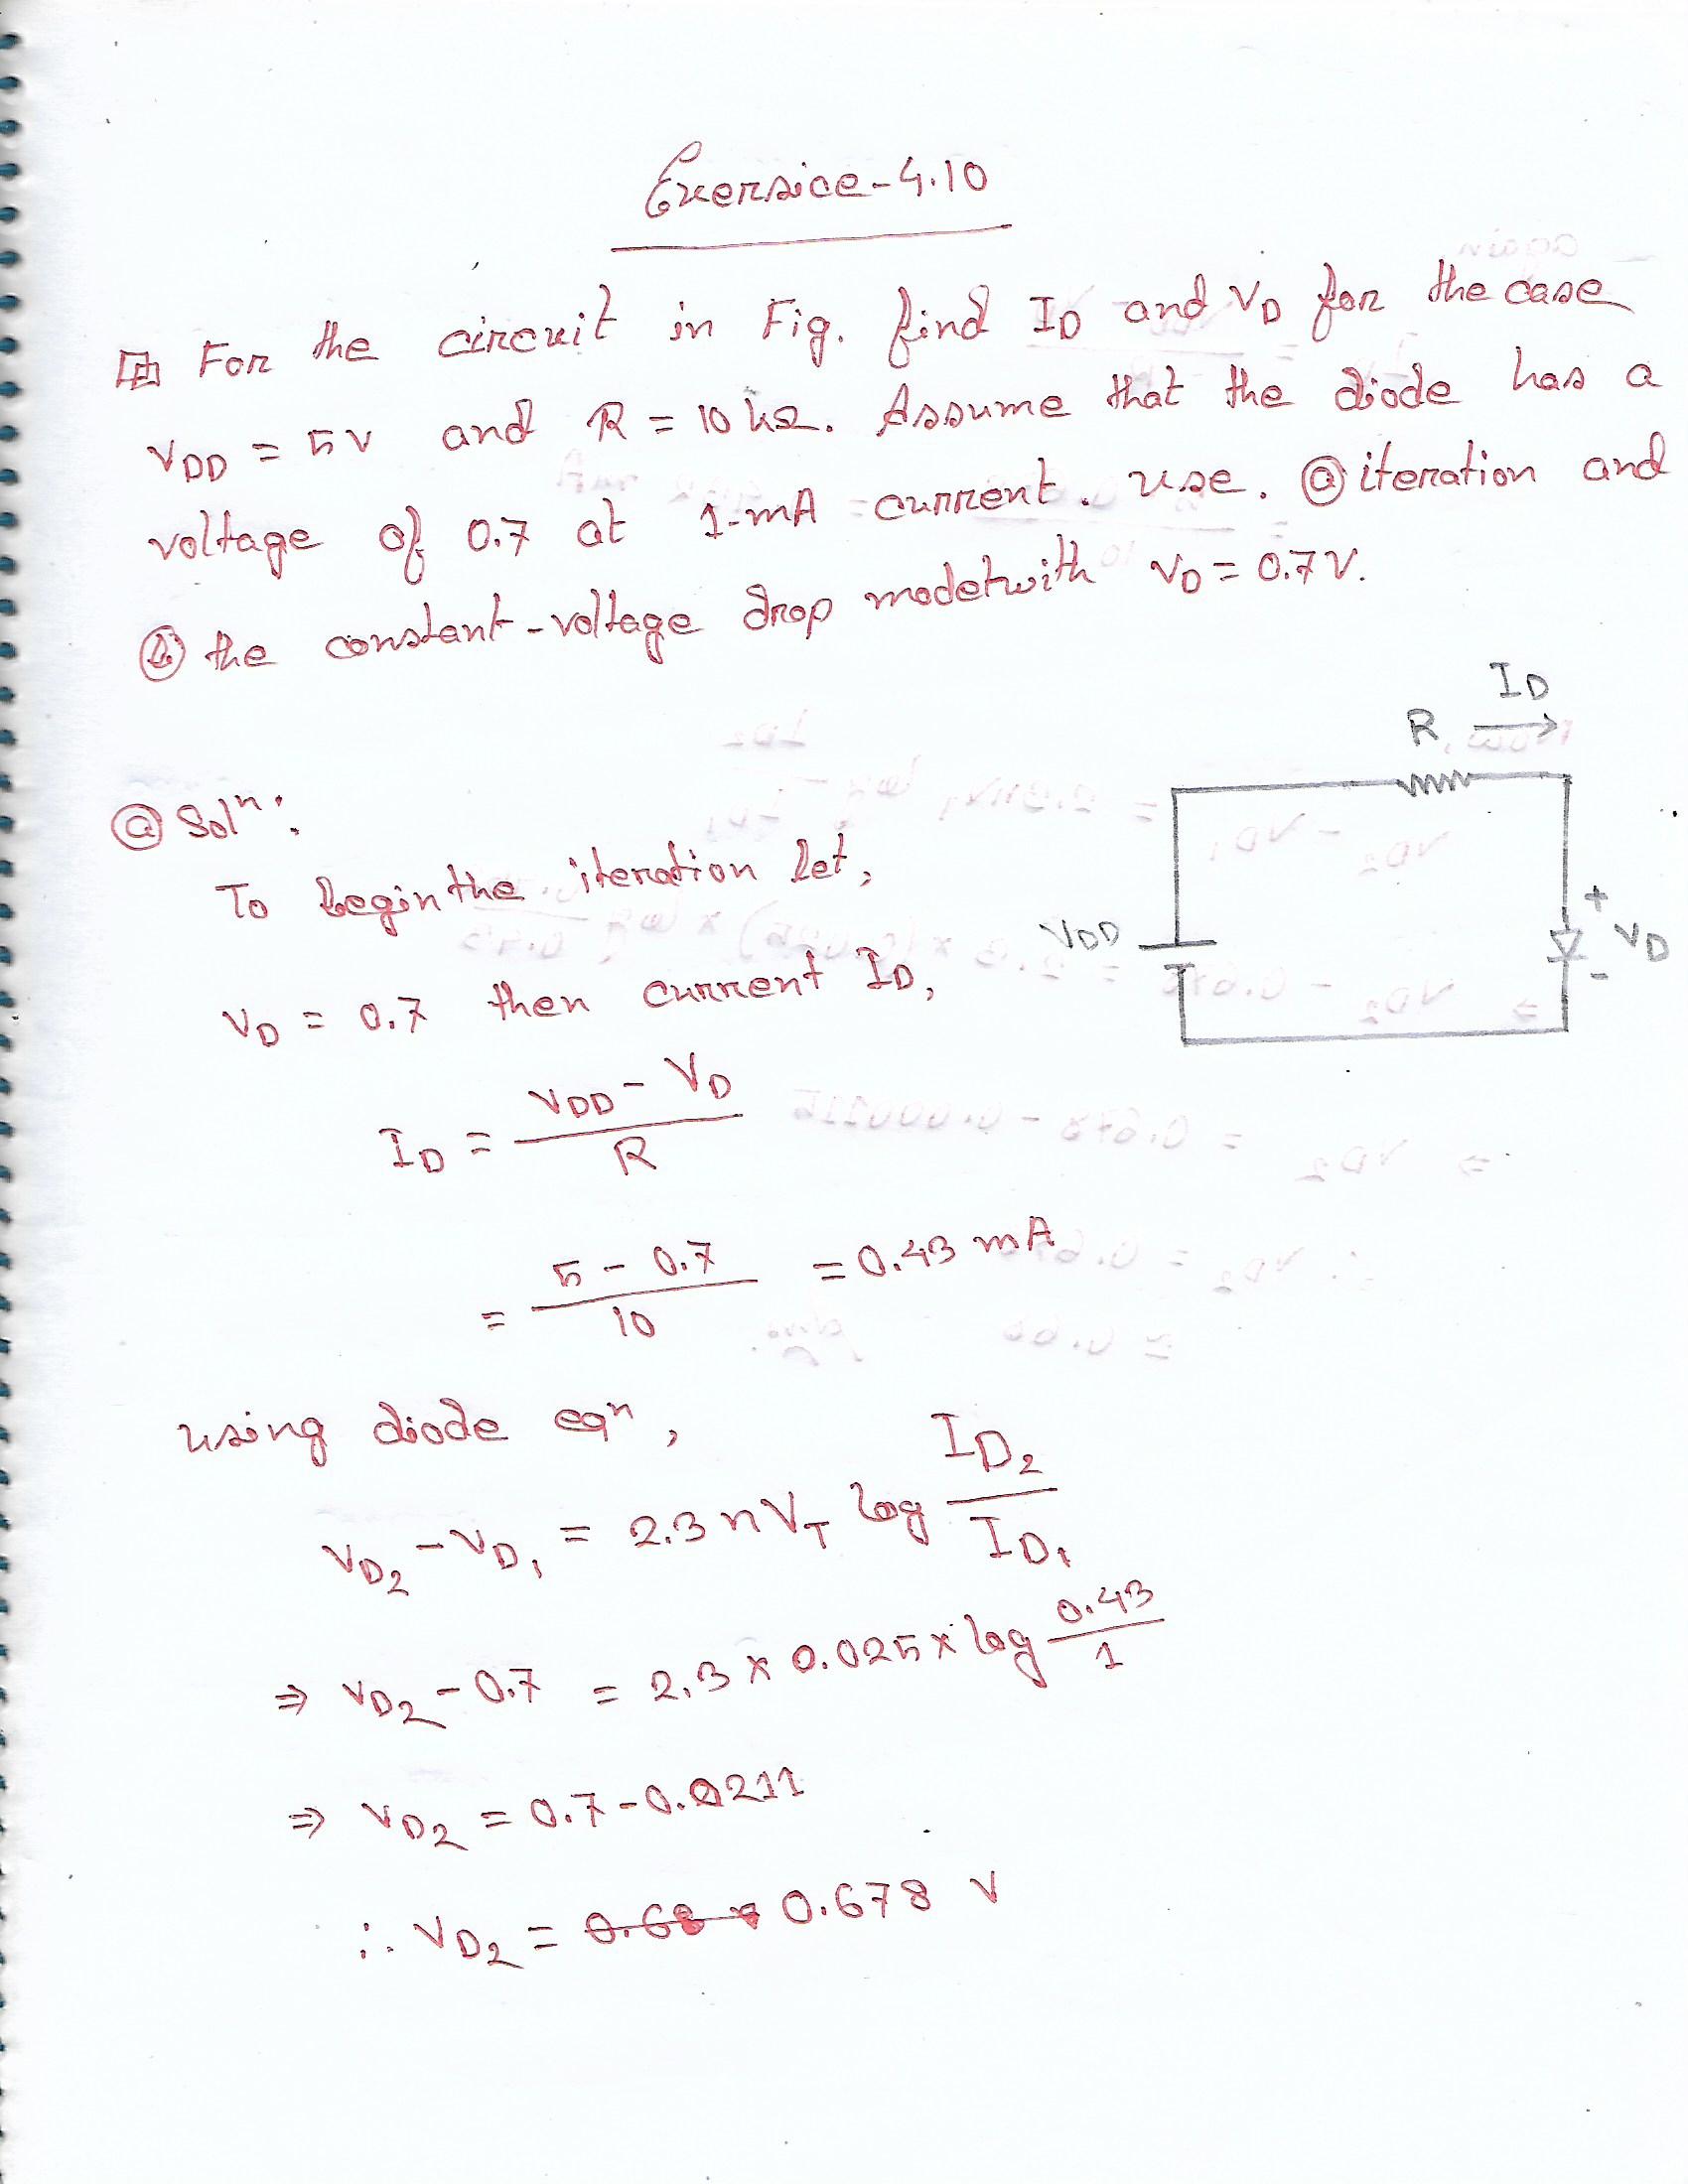 Exersice-4.10
For the circuit in Fig. find I_D and V_D for the case
V_DD = 5V and R = 10 kΩ. Assume that the diode has a
voltage of 0.7 at 1-mA current. use. ⓐ iteration and
ⓑ the constant-voltage drop model with V_D = 0.7V.
I_D
R
V_DD
+
V_D
-
ⓐ Solⁿ:
To begin the iteration let,
V_D = 0.7 then current I_D,
I_D = (V_DD - V_D) / R
= (5 - 0.7) / 10 = 0.43 mA
using diode eqⁿ,
V_D2 - V_D1 = 2.3 n V_T log I_D2 / I_D1
⇒ V_D2 - 0.7 = 2.3 × 0.025 × log 0.43 / 1
⇒ V_D2 = 0.7 - 0.0211
∴ V_D2 = 0.678 V